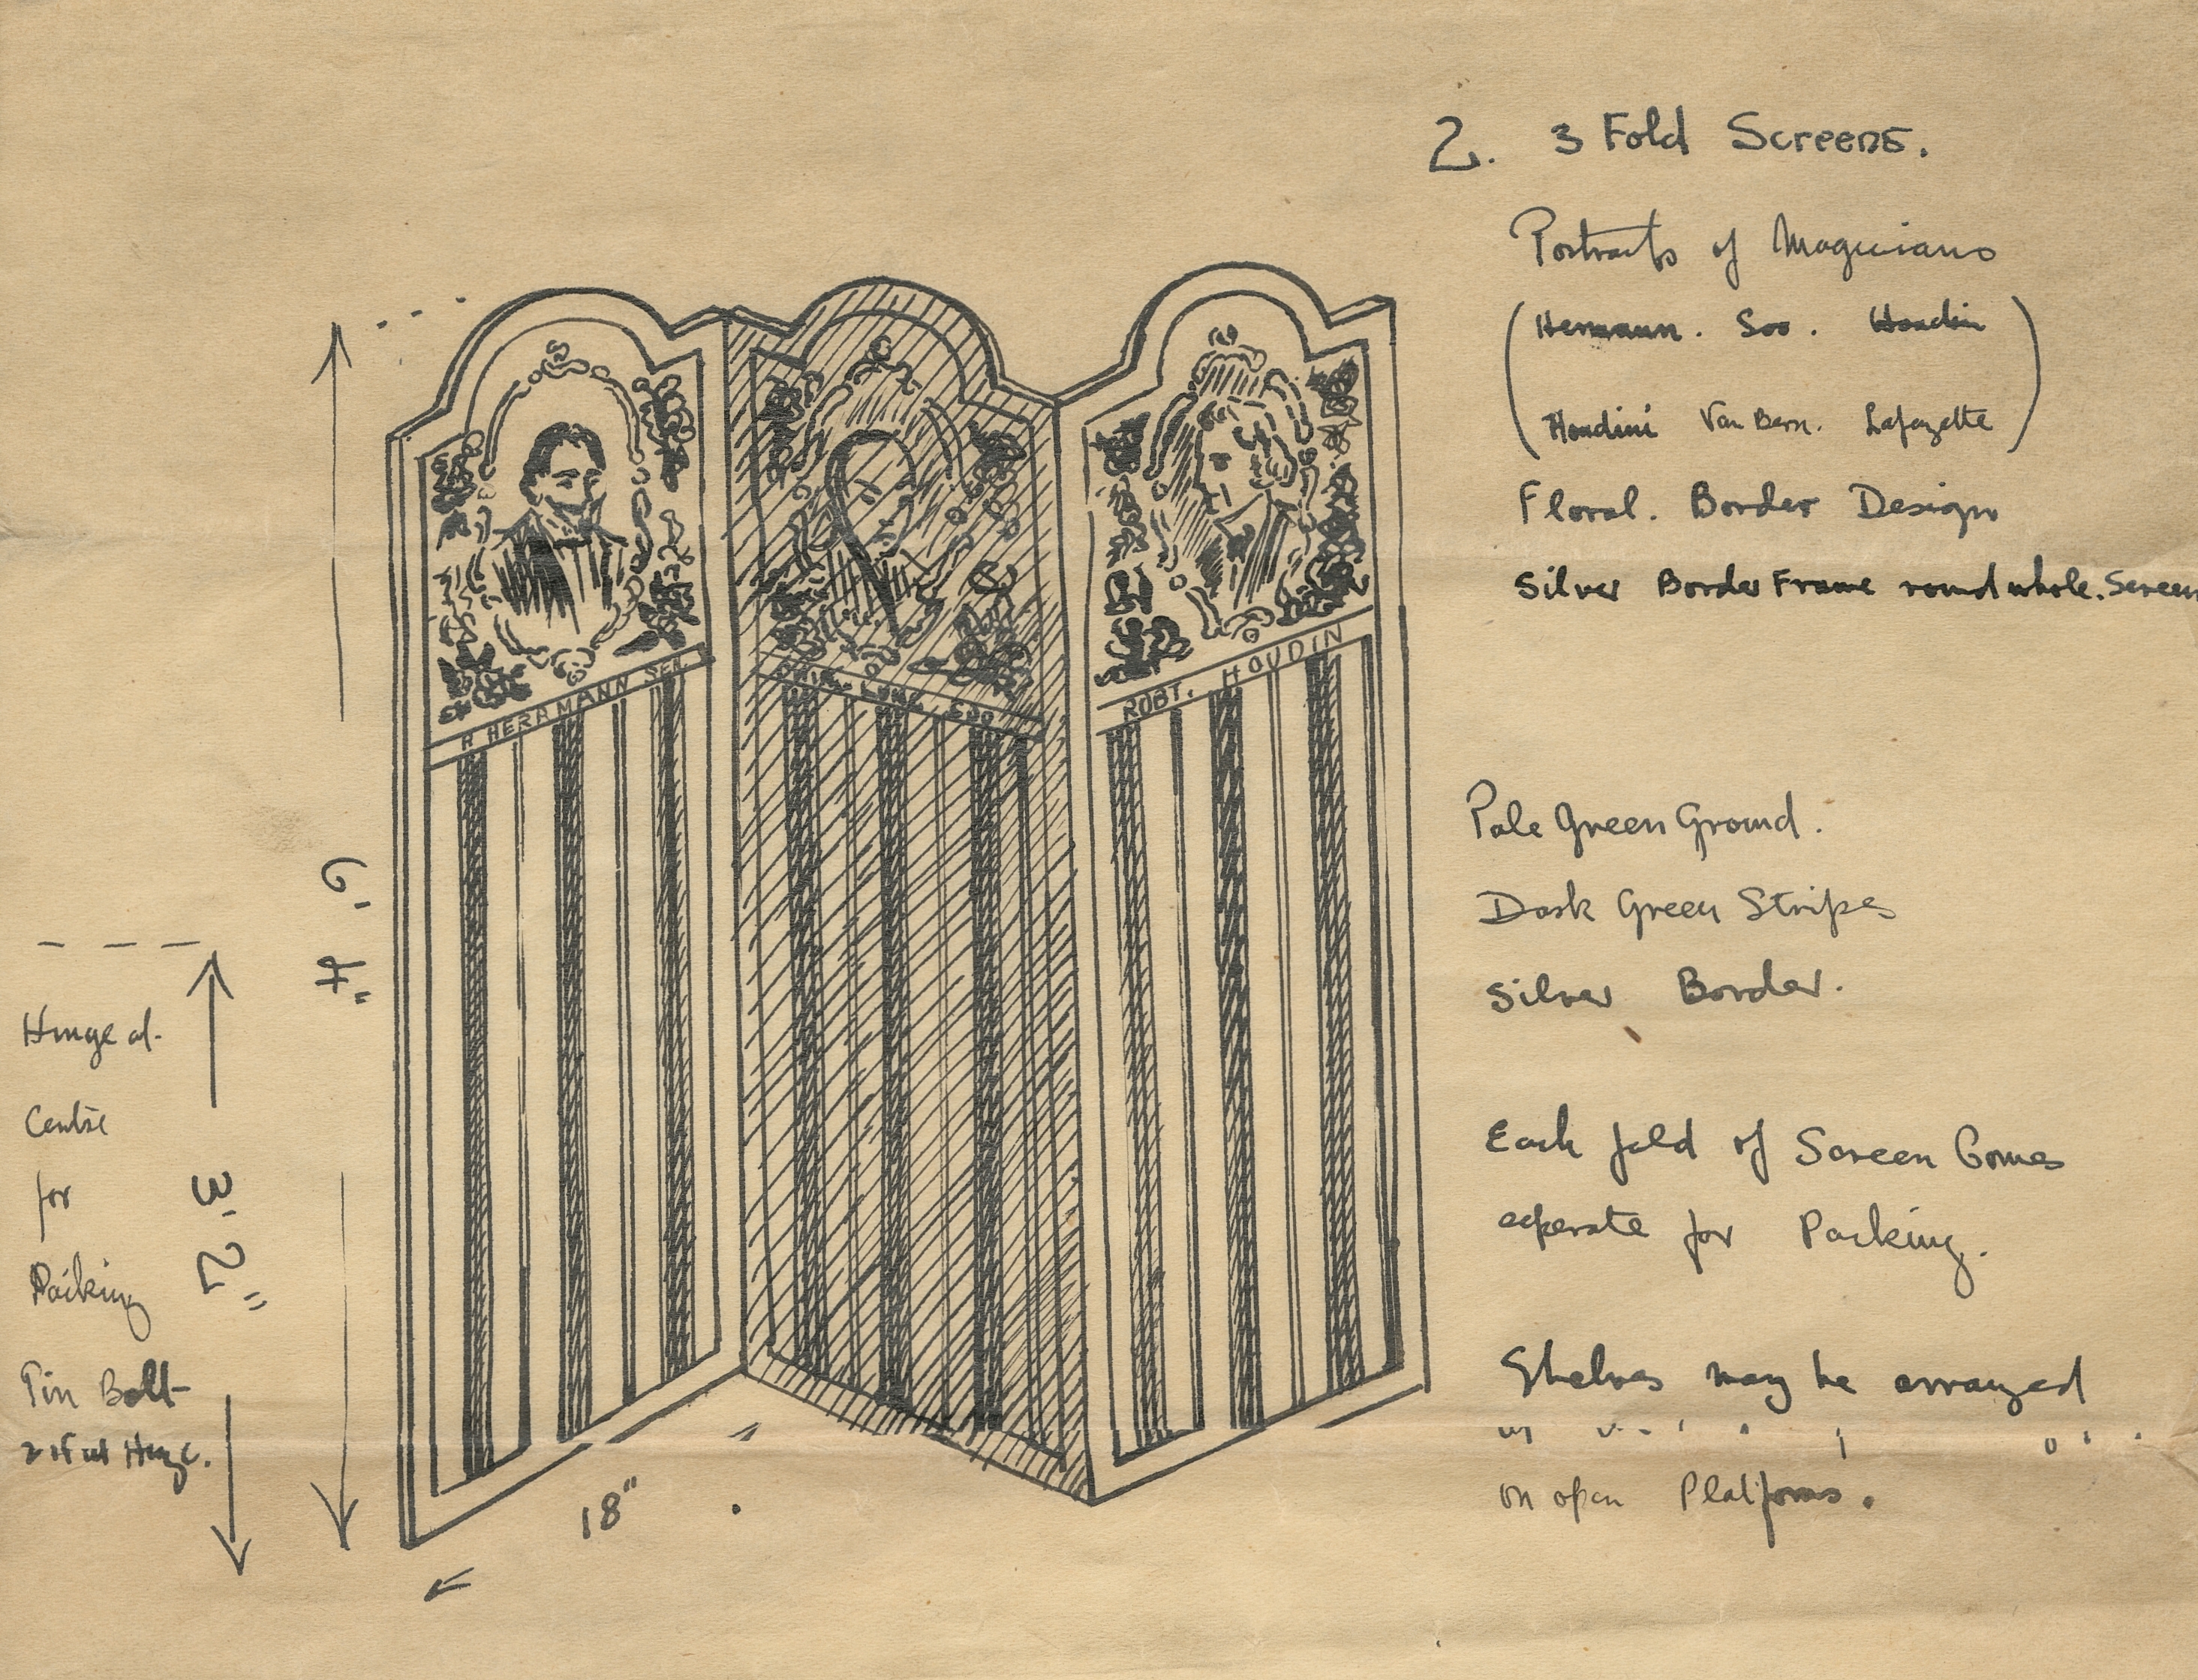 2. 3 Fold Screens.
Portraits of Magicians
(Hermann. Soo. Houdin
Houdini Van Bern. Lafayette)
Floral. Border Design
Silver Border Frame round whole. Screen
A HERRMANN SEN.
CHING LUNG SOO
ROBT. HOUDIN
Pale Green Ground.
Dark Green Stripes
Silver Border.
6' 4"
Hinge at
Centre
for
Packing
Pin Bolt
3' 2"
18"
Each fold of Screen Comes
seperate for Packing.
Shelves may be arranged
on open Platforms.